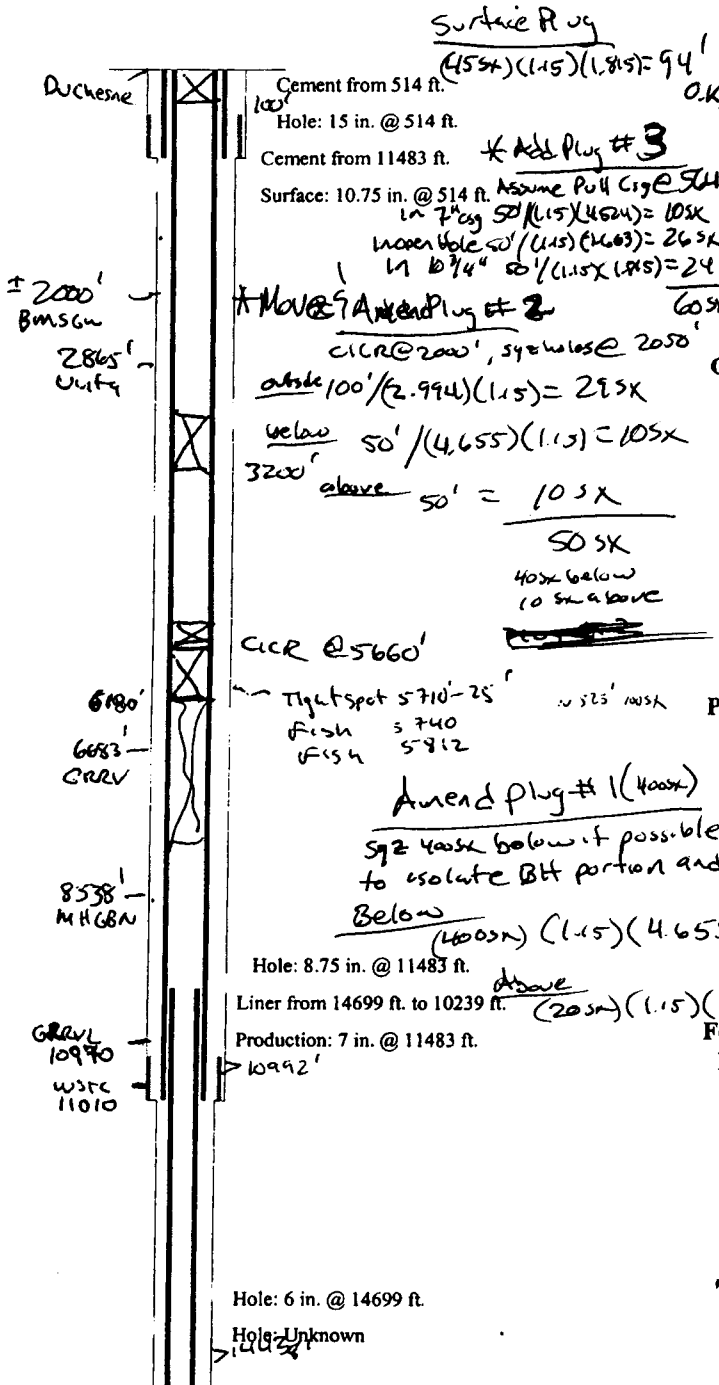 Surface Plug
(45sx)(1.15)(1.815)= 94'
O.K.
Duchesne
100'
Cement from 514 ft.
Hole: 15 in. @ 514 ft.
Cement from 11483 ft.
Surface: 10.75 in. @ 514 ft.
* Add Plug # 3
Assume Pull Csg @
in 7" csg 50'/(1.15)(4.524)= 10sx
in open hole 50'/(1.15)(1.663)= 26sx
in 10 3/4" 50'/(1.15)(1.815)= 24
60sx
± 2000'
BMSGW
2865'
Uinta
* Move & Amend Plug # 2
CICR@2000', sqz holes@ 2050'
outside 100'/(2.994)(1.15)= 29sx
below 50'/(4.655)(1.15)= 10sx
3200'
above 50' = 10 sx
50 sx
40sx below
10 sx above
CICR @5660'
Tight spot 5710'-25'
~ 525' 100sx
P
Fish 5740
Fish 5812
6180'
6683'
GRRV
Amend plug # 1 (400sx)
sqz 400sx below if possible
to isolate BH portion and
Below
(400sx) (1.15)(4.655
8538'
MHGBN
Hole: 8.75 in. @ 11483 ft.
Above
(20sx)(1.15)(
Liner from 14699 ft. to 10239 ft.
Production: 7 in. @ 11483 ft.
GRRVL
10970
10992'
WSTC
11010
Hole: 6 in. @ 14699 ft.
Hole: Unknown